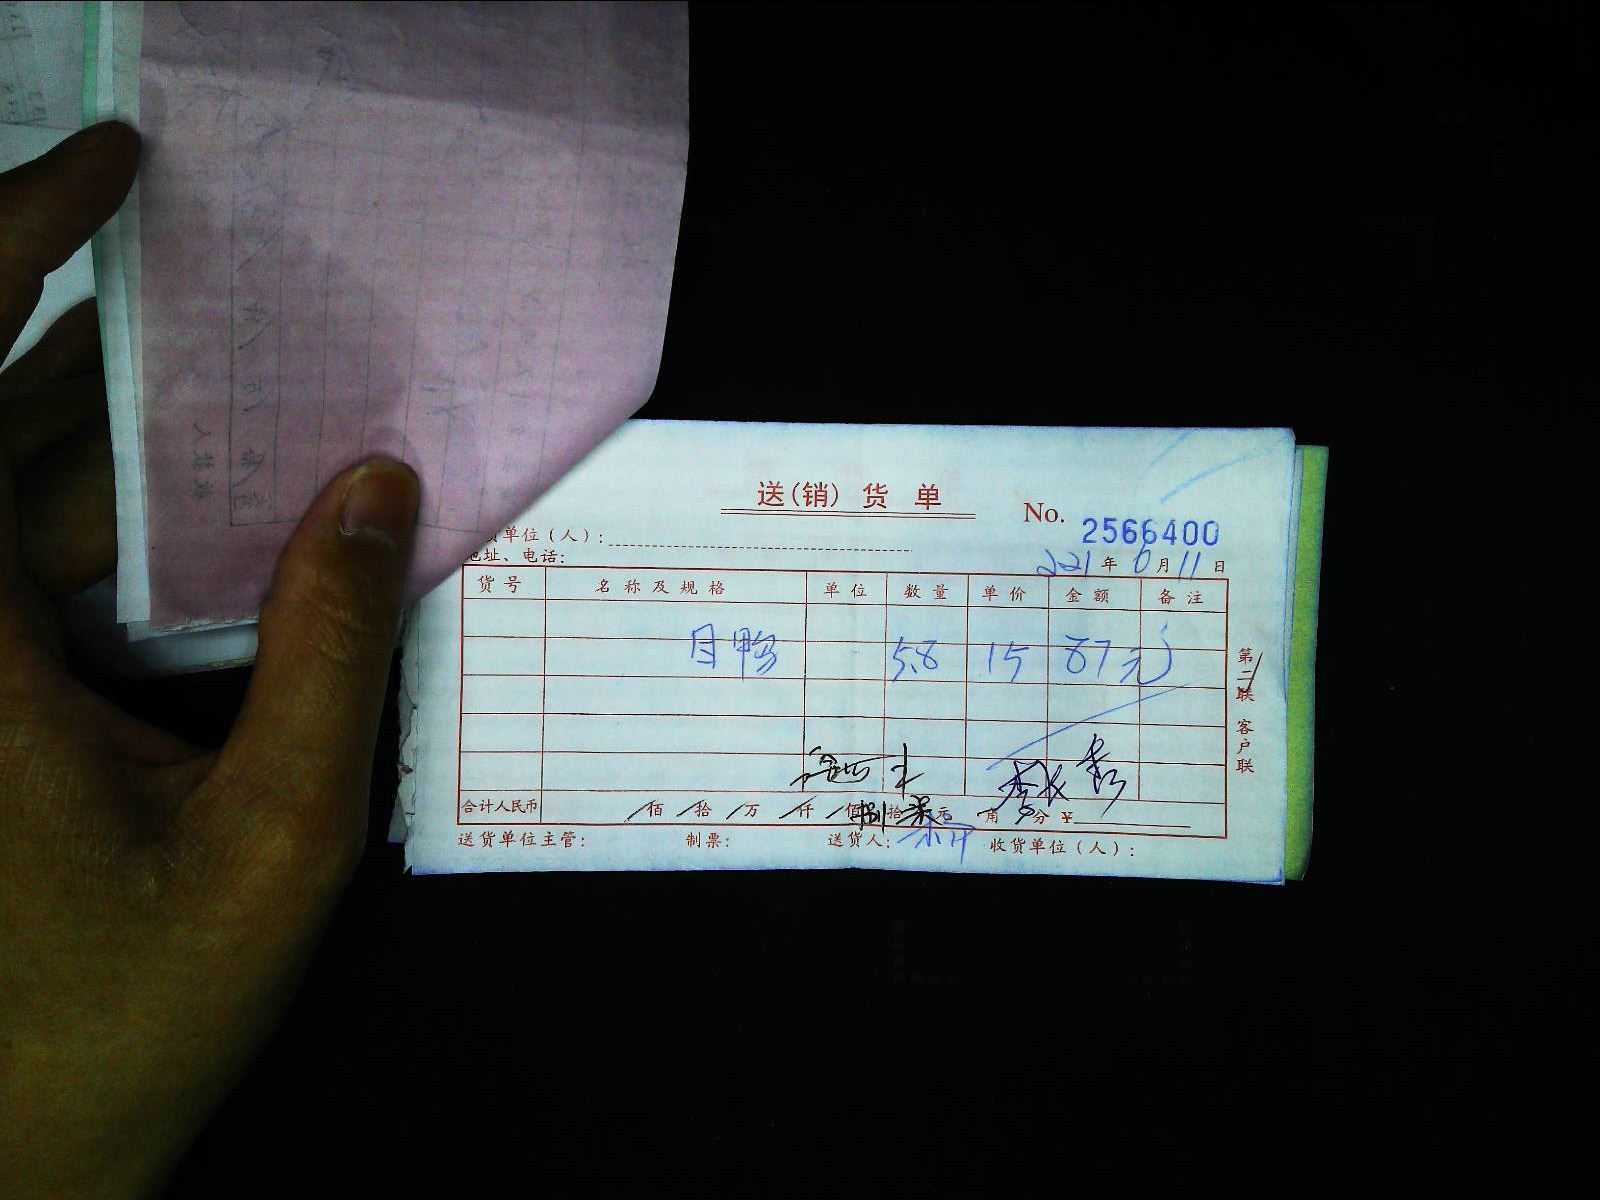 送(销) 货 单
No. 2566400
货单位（人）：
地址、电话：
221年6月11日
货号 名称及规格 单位 数量 单价 金额 备注
鸭 5.8 15 87元
合计人民币 佰 拾 万 仟 佰 捌拾 柒元 角 分 ¥
送货单位主管： 制票： 送货人： 收货单位（人）：
第二联 客户联